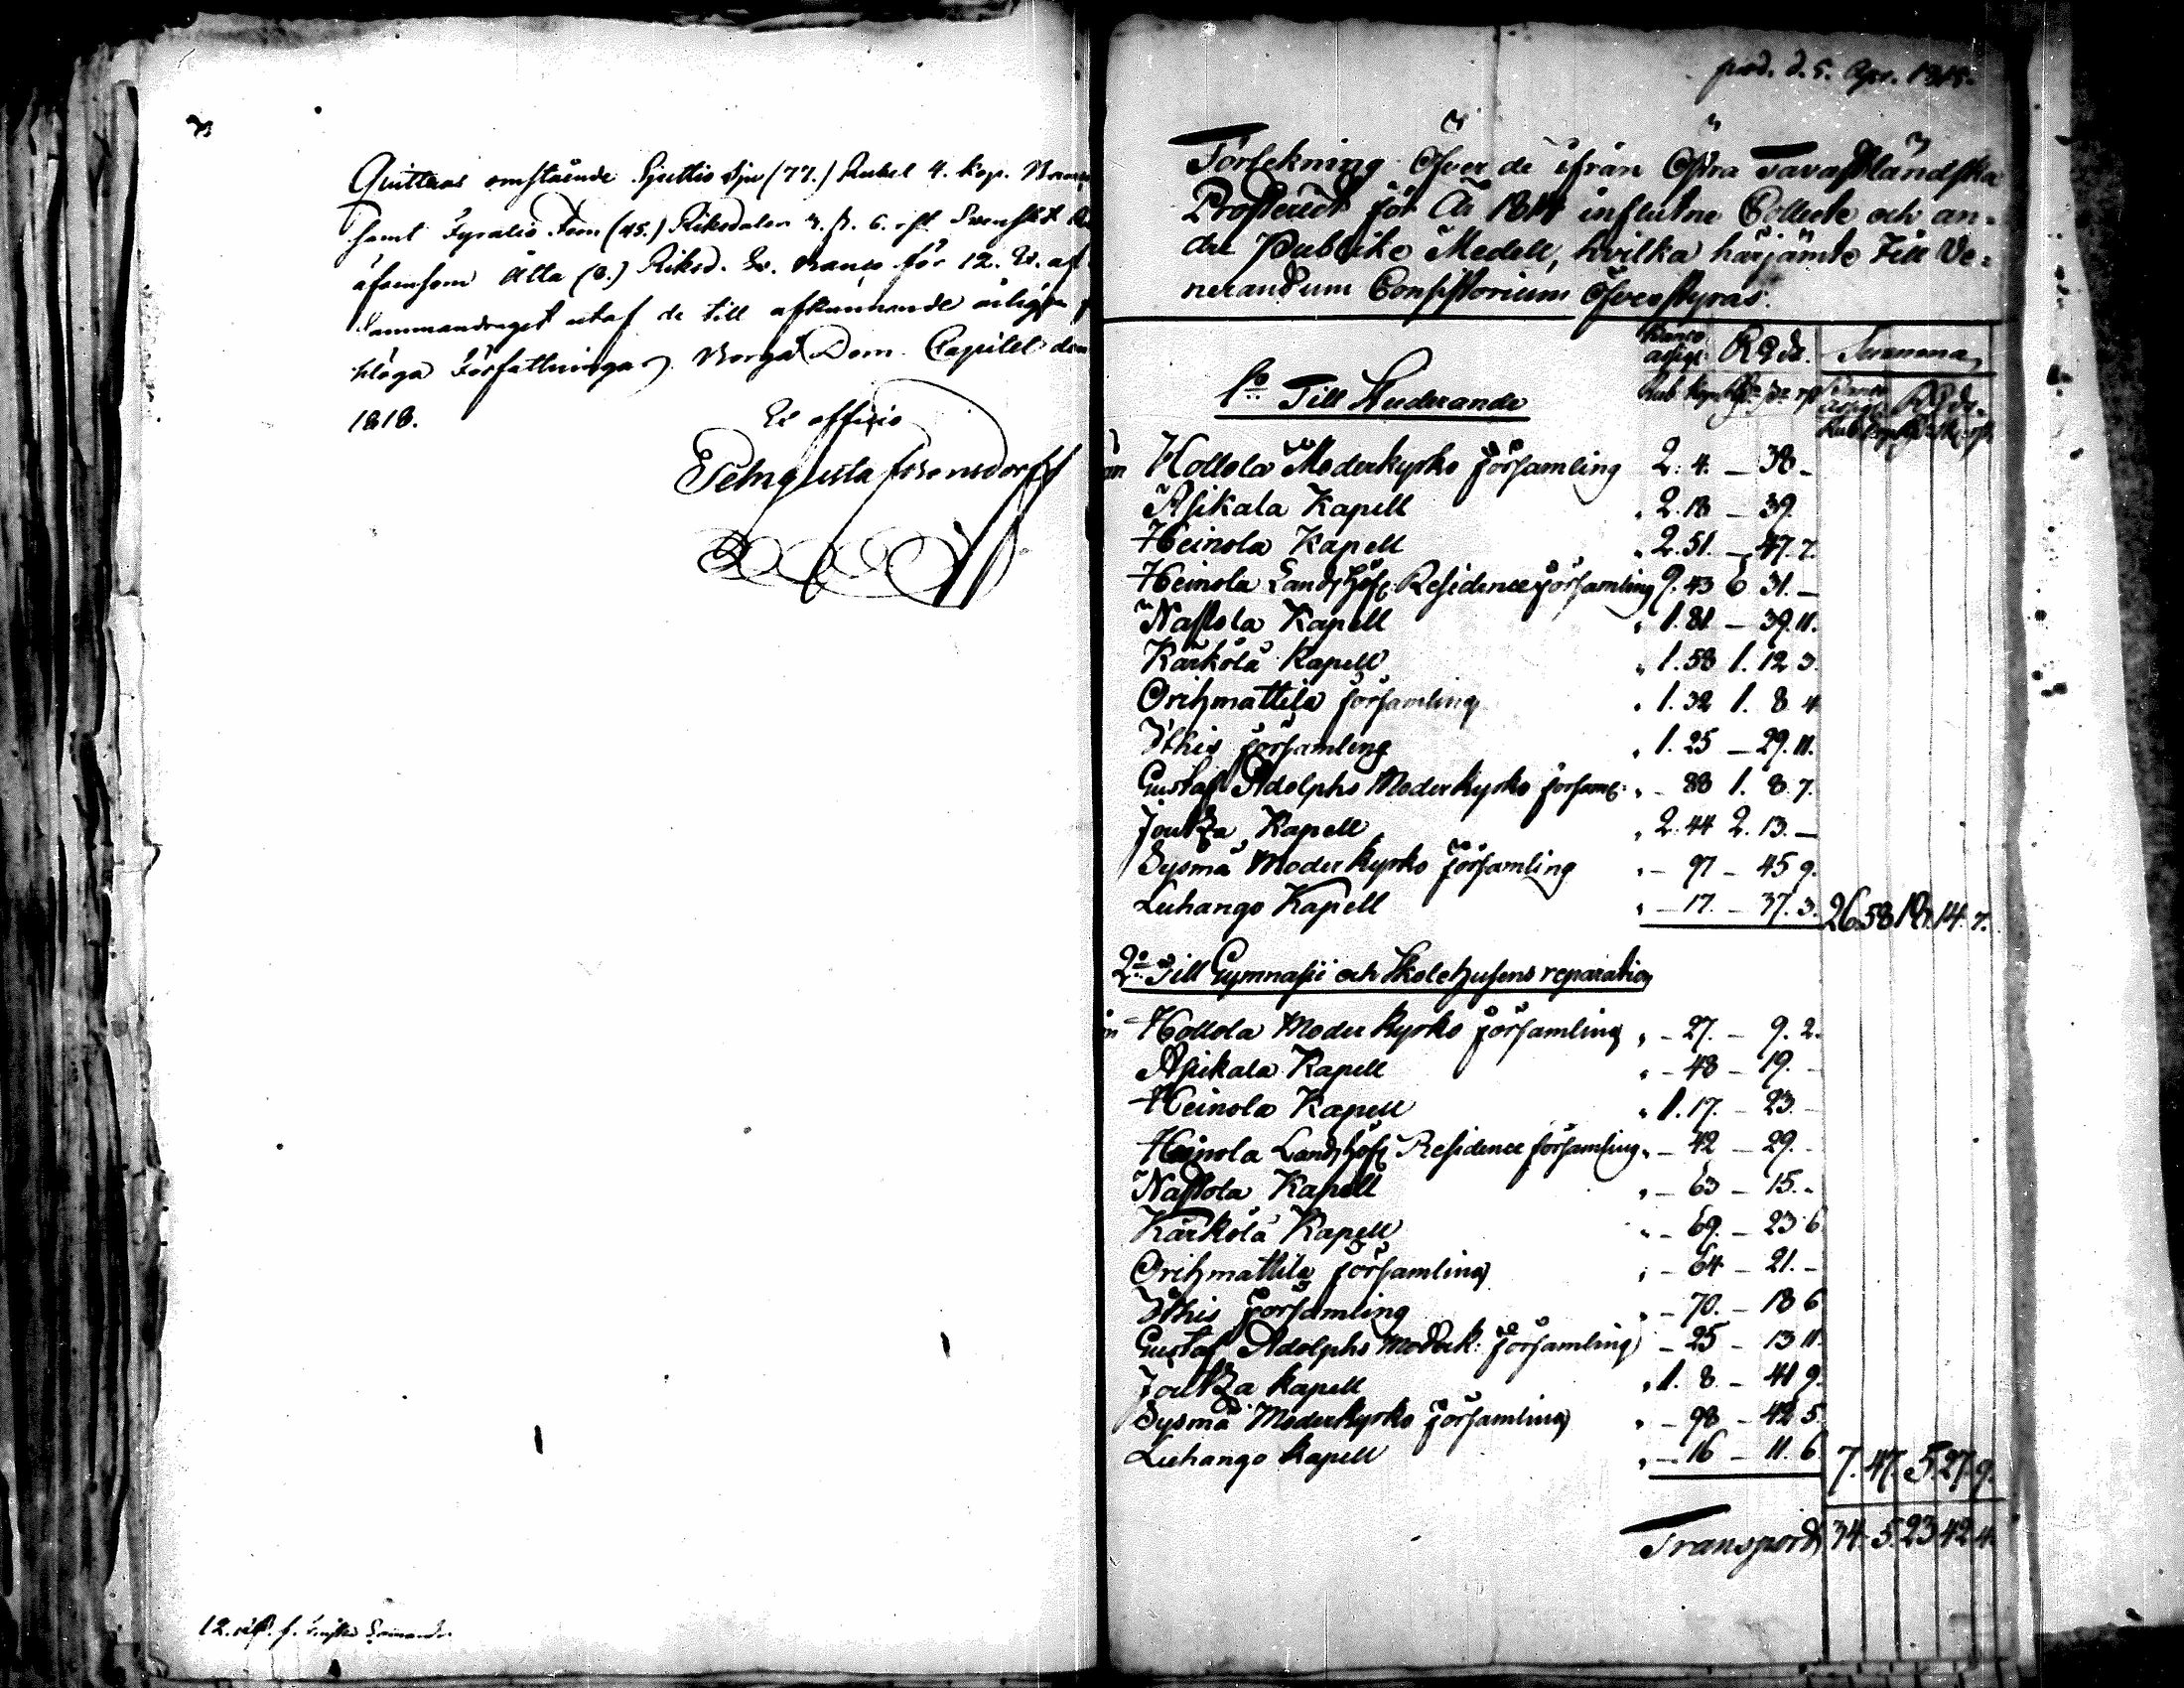 Quitteras omstående Sjuttio sju (77.) Rubel 4. kop. Banco
samt Fyratio Fem (45.) Riksdaler 3. s. 6. rst Svenskt
äfvensom Åtta (8.) Riksd. Sv. Banco för 12. Ex. af
Sammandraget utaf de till afkunnande årligen
Författningar. Borgå Dom-Capitel den
1818.
Ex officio
Pehr Gustaf Bonsdorff
12. f.
prod. d. 5. Apr. 1815.
Förtekning Öfver de ifrån Östra Tavastländska
Prosteriet för År 1814 influtne Collecte och an-
dre Publike Medell, hvilka härjämte till Ve-
nerandum Consistorium Öfverstyras.
Banco assign: RGds. Summa
Rub. kop.
1o Till Studerande
Hollola Moderkyrko församling 2. 4. — 38 -
Asikala Kapell " 2. 18 — 39.
Heinola Kapell " 2. 51. — 47. 7.
Heinola Landshöfd. Residence församling 9. 43 6 31. —
Nastola Kapell " 1. 81. — 39. 11.
Kärkölä Kapell " 1. 58 1. 12 3.
Orihmattila församling " 1. 32 1. 8 4
Ithis församling " 1. 25 — 29. 11.
Gustaf Adolphs Moderkyrko församl: " - 88 1. 8. 7.
Joutza Kapell " 2. 44 2. 13. —
Sysmä Moderkyrko församling " - 97 - 45 9.
Luhango Kapell " - 17. - 37. 3. 26. 58 18. 14. 7.
2o Till Gymnasii och Skolehusens reparation
Hollola Moderkyrko församling " - 27. - 9. 2.
Asikala Kapell " - 48 - 19. -
Heinola Kapell " 1. 17. - 23. -
Heinola Landshöfd Residence församling " - 42 - 29. -
Nastola Kapell " - 63 - 15. -
Kärkölä Kapell " - 69. - 23 6
Orihmattila församling " - 64 - 21. -
Ithis församling " - 70. - 18 6
Gustaf Adolphs Moderk: församling - 25 - 13 11.
Joutza kapell " 1. 8 - 41 9.
Sysmä Moderkyrko församling " - 98 - 42 5
Luhango kapell " - 16 - 11. 6 7. 47. 5. 27. 9.
Transport 34. 5. 23. 42. 4.